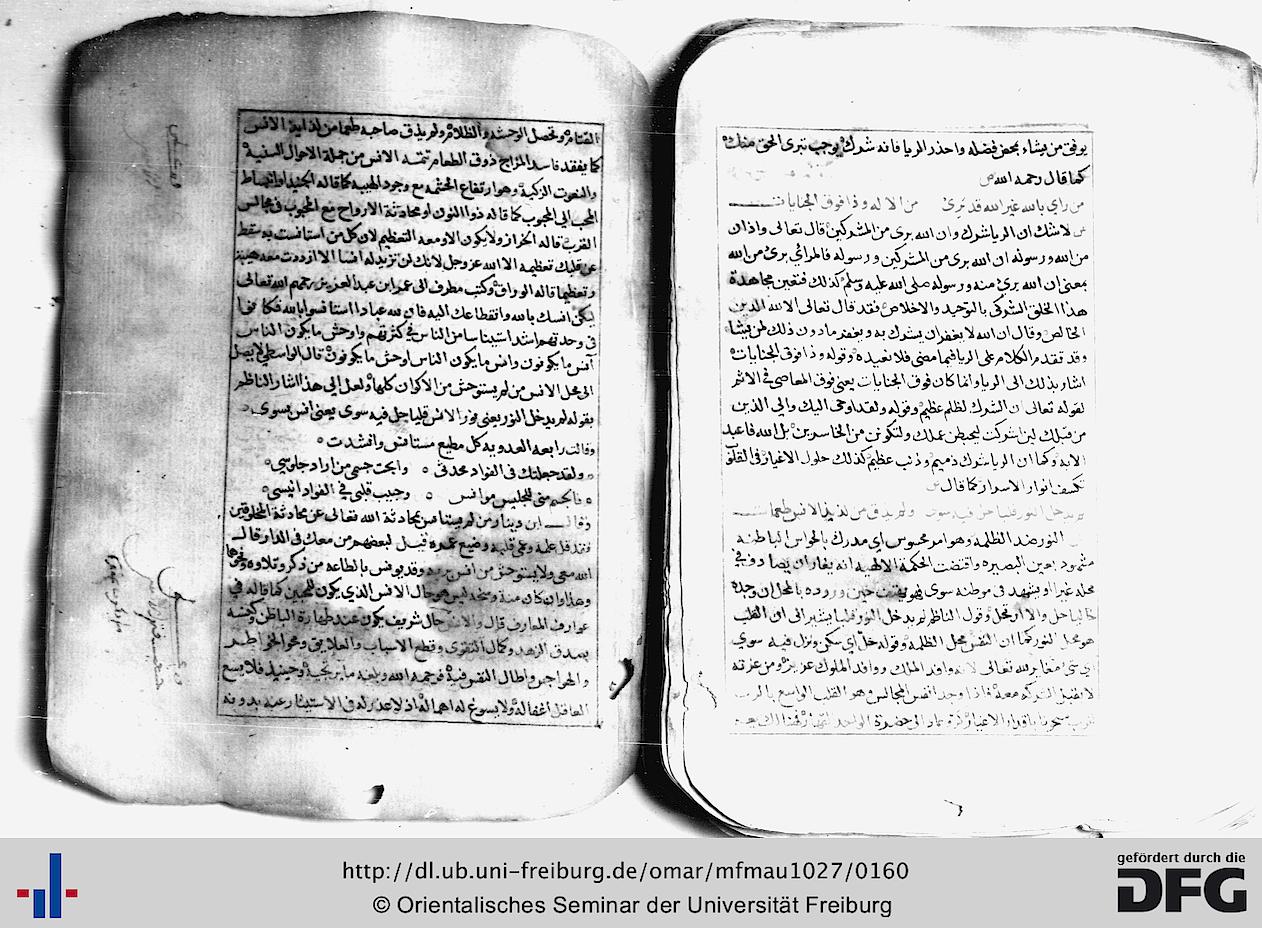 يوفق من يشاء بمحض فضله واحذر الريا فانه شرك يوجب تبرى الحق منك
كما قال رحمه الله
من راي بالله غير الله قد برئ من الاله وذا فوق الجنايات
لاشك ان الرياشرك وان الله برى من المشركين قال تعالى واذان
من الله ورسوله ان الله برى من المشركين ورسوله فالمرائي برئ من الله
بمعنى ان الله برئ منه ورسوله صلى الله عليه وسلم كذلك فتعين مجاهدة
هذا الخلق الشركى بالتوحيد والاخلاص فقد قال تعالى الا لله الدين
الخالص وقال ان الله لا يغفر ان يشرك به ويغفر مادون ذلك لمن يشا
وقد تقدم الكلام على الريا فيما مضى فلا نعيده وقوله وذا فوق الجنايات
اشار بذلك الى الريا وانما كان فوق الجنايات يعنى فوق المعاصي في الاثم
لقوله تعالى ان الشرك لظلم عظيم وقوله ولقد اوحى اليك والي الذين
من قبلك لئن اشركت ليحبطن عملك ولتكونن من الخاسرين بل الله فاعبد
الايه وكما ان الرياشرك ذميم وذنب عظيم كذلك حلول الاغيار فى القلب
تكسف انوار الاسرار كما قال
لم يدخل النور قلبا حل فيه سوى ولم يذق من لذيذ الانس طعما
النور ضد الظلمه وهو امر محسوس اي مدرك بالحواس الباطنه
مشهود بعين البصيره واقتضت الحكمة الالهيه انه يغار ان يصادف في
محله غير او يشهد فى موطنه سوى فهو يلتفت حين وروده بالمحل ان وجده
خاليا حل والا ارتحل وقول الناظم لم يدخل النور قلبا يشير الى ان القلب
هو محل النور كما ان النفس محل الظلمه وقوله حل اي سكن ونزل فيه سوي
اي شئ مغاير لله تعالى لانه وافد الملك ووافد الملوك عزيز ومن عزته
لا يقبل الشركه معه فاذا وجد انفس المجالس هو القلب الواسع بالرب
القتام وتحصل الوحشه والظلام ولم يذق صاحبه طعما من لذايذ الانس
كما يفقد فاسد المزاج ذوق الطعام تتمه الانس من جملة الاحوال السنيه
والنعوت الزكيه وهو ارتفاع الحشمه مع وجود الهيبه كما قاله الجنيد او انبساط
المحب الى المحبوب كما قاله ذوا النون او محادثة الارواح مع المحبوب فى مجالس
القرب قاله الخراز ولا يكون الا ومعه التعظيم لان كل من استانست به سقط
عن قلبك تعظيمه الا الله عز وجل لانك لن تزيد له انسا الا ازددت معه هيبة
وتعظيما قاله الوراق وكتب مطرف الى عمر ابن عبد العزيز رحمهم الله تعالى
ليكن انسك بالله وانقطاعك اليه فان لله عبادا استانسوا بالله فكانوا
فى وحدتهم اشد استيناسا من الناس في كثرتهم واوحش ما يكون الناس
آنس ما يكونون وانس ما يكون الناس اوحش ما يكونون قال الواسطي لا يصل
الى محل الانس من لم يستوحش من الاكوان كلها ولعل الى هذا اشار الناظم
بقوله لم يدخل النور يعنى نور الانس قلبا حل فيه سوى يعنى انس بسوى
وقالت رابعه العدويه كل مطيع مستانس وانشدت
ولقد جعلتك فى الفواد محدثى وابحت جسمى من اراد جلوسى
فالجسم منى للجليس موانس وحبيب قلبى في الفواد انيسى
وقال ابن دينار من لم يستانس بمحادثة الله تعالى عن محادثة المخلوقين
فقد قل علمه وعمى قلبه وضيع عمره قيل لبعضهم من معك فى الدار قال
الله معى ولا يستوحش من انس بربه وقد يونس بالطاعه من ذكر وتلاوه ونحوها
وهذا وان كان منة ومنحه ليس هو حال الانس الذي يكون للمحبين كما قاله في
عوارف المعارف قال والانس حال شريف يكون عند طهارة الباطن وكنسه
بصدق الزهد وكمال التقوى وقطع الاسباب والعلايق ومحو الخواطر
والهواجس واطال النفس فيه فرحمه الله وبلغه ما يرتجيه وحينيذ فلا يسع
العاقل اغفاله ولا يسوغ له اهماله اذ لا عذر له فى الاستيثار عنه بدونه
http://dl.ub.uni-freiburg.de/omar/mfmau1027/0160
© Orientalisches Seminar der Universität Freiburg
gefördert durch die
DFG